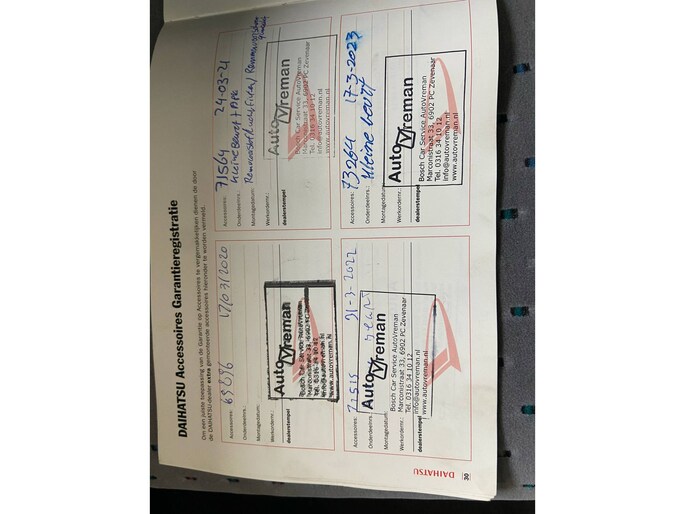 DAIHATSU Accessoires Garantieregistratie
Om een juiste toepassing van de Garantie op Accessoires te vergemakkelijken dienen de door
de DAIHATSU-dealer extra gemonteerde accessoires hieronder te worden vermeld.
Accessoires: 69896 17/03/2020
Onderdeelnrs.:
Montagedatum:
Werkordernr.:
dealerstempel
AutoVreman
Bosch Car Service AutoVreman
Marconistraat 33, 6902 PC Zevenaar
Tel. 0316 34 10 12
info@autovreman.nl
www.autovreman.nl
Accessoires: 71564 24-03-21
Onderdeelnrs.: Kleine Beurt + APK
Montagedatum: Remvloeistof
Werkordernr.:
dealerstempel
AutoVreman
Bosch Car Service AutoVreman
Marconistraat 33, 6902 PC Zevenaar
Tel. 0316 34 10 12
info@autovreman.nl
www.autovreman.nl
Accessoires: 72515 31-3-2022
Onderdeelnrs.: Beurt
Montagedatum:
Werkordernr.:
dealerstempel
AutoVreman
Bosch Car Service AutoVreman
Marconistraat 33, 6902 PC Zevenaar
Tel. 0316 34 10 12
info@autovreman.nl
www.autovreman.nl
Accessoires: 73264 17-3-2023
Onderdeelnrs.: kleine beurt
Montagedatum:
Werkordernr.:
dealerstempel
AutoVreman
Bosch Car Service AutoVreman
Marconistraat 33, 6902 PC Zevenaar
Tel. 0316 34 10 12
info@autovreman.nl
www.autovreman.nl
30
DAIHATSU